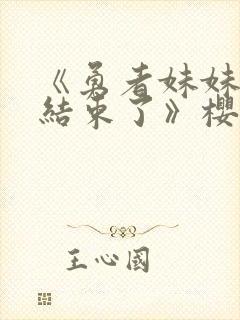 《勇者妹妹
結束了》櫻
王心國